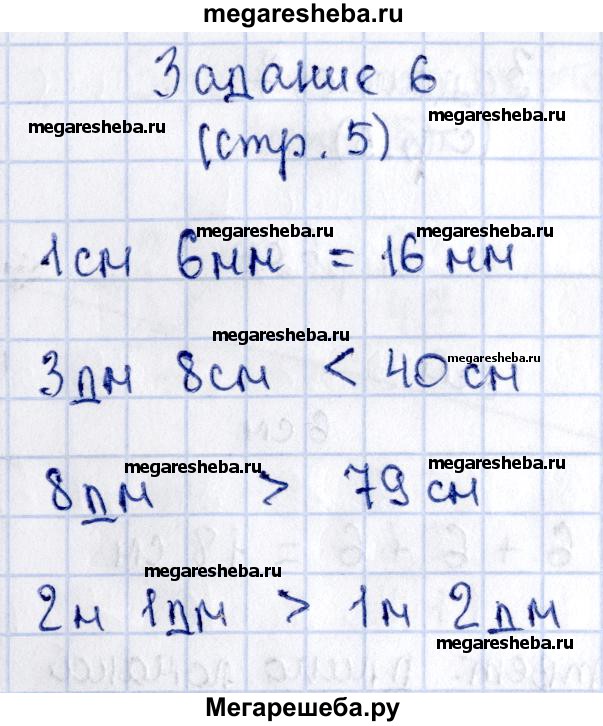 megaresheba.ru
Задание 6
megaresheba.ru
megaresheba.ru
(стр. 5)
megaresheba.ru
megaresheba.ru
1см 6мм = 16 мм
megaresheba.ru
megaresheba.ru
3дм 8см < 40 см
megaresheba.ru
megaresheba.ru
8дм > 79 см
megaresheba.ru
2м 1дм > 1м 2дм
megaresheba.ru
Мегарешеба.ру